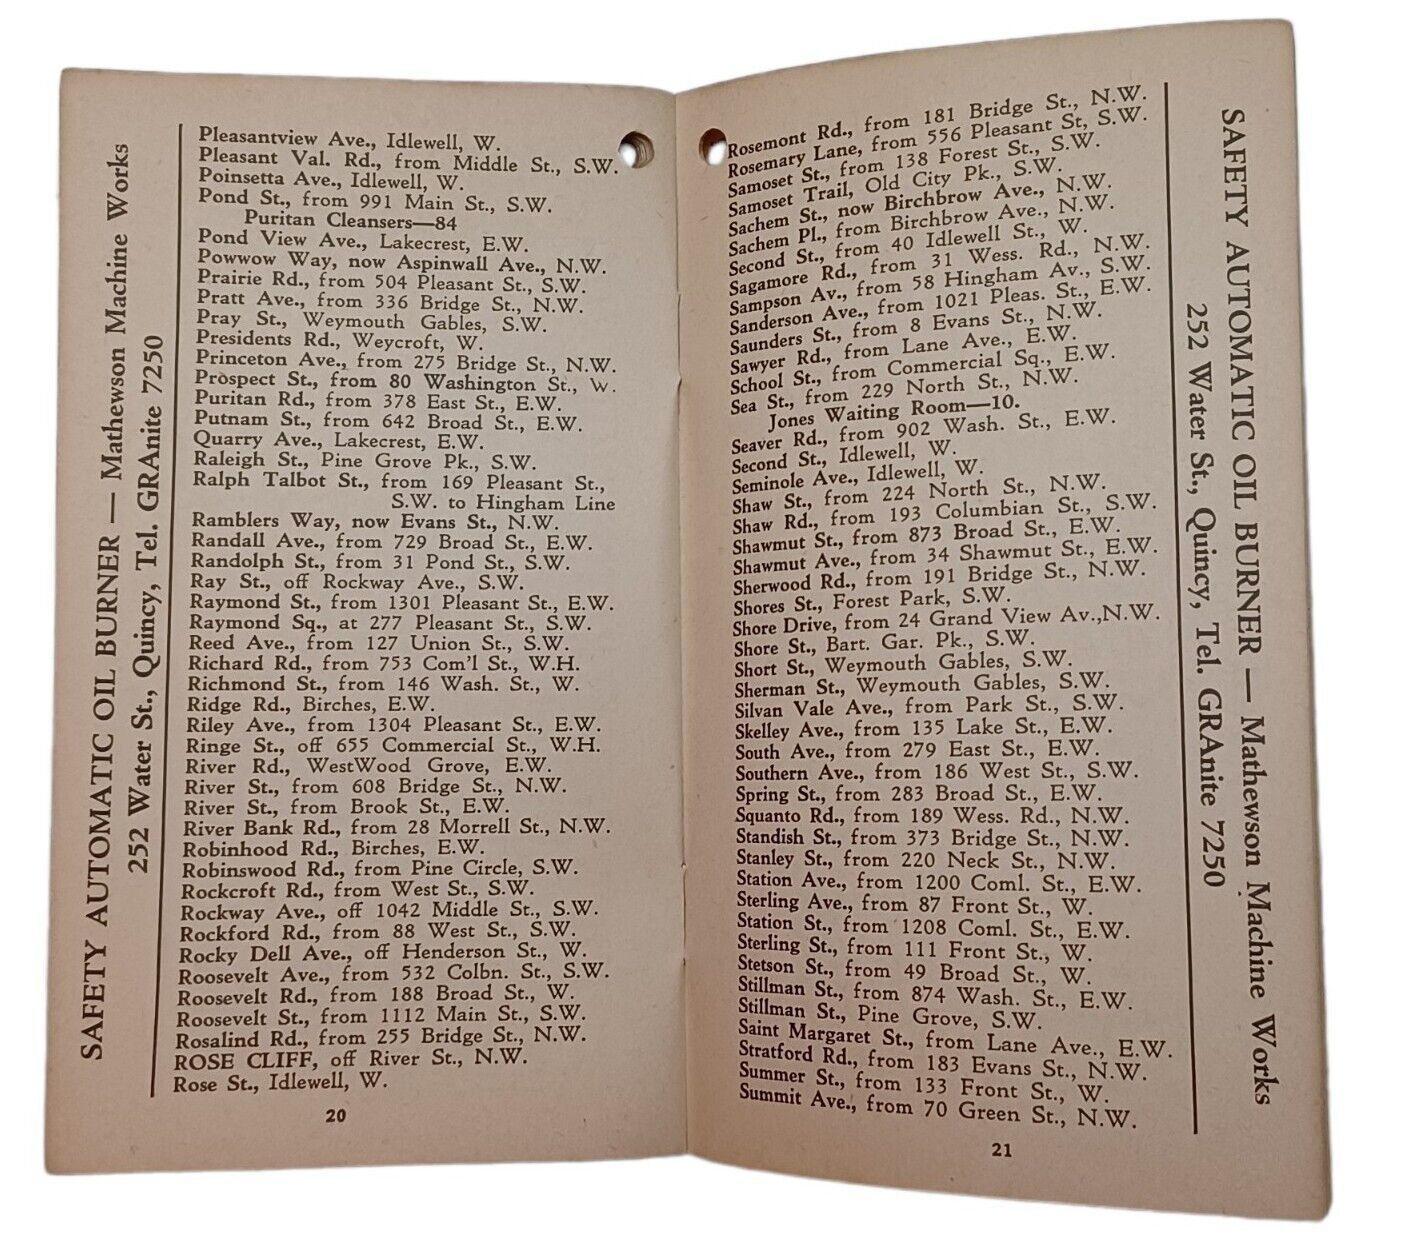 SAFETY AUTOMATIC OIL BURNER — Mathewson Machine Works
252 Water St., Quincy, Tel. GRAnite 7250
Pleasantview Ave., Idlewell, W.
Pleasant Val. Rd., from Middle St., S.W.
Poinsetta Ave., Idlewell, W.
Pond St., from 991 Main St., S.W.
Puritan Cleansers—84
Pond View Ave., Lakecrest, E.W.
Powwow Way, now Aspinwall Ave., N.W.
Prairie Rd., from 504 Pleasant St., S.W.
Pratt Ave., from 336 Bridge St., N.W.
Pray St., Weymouth Gables, S.W.
Presidents Rd., Weycroft, W.
Princeton Ave., from 275 Bridge St., N.W.
Prospect St., from 80 Washington St., W.
Puritan Rd., from 378 East St., E.W.
Putnam St., from 642 Broad St., E.W.
Quarry Ave., Lakecrest, E.W.
Raleigh St., Pine Grove Pk., S.W.
Ralph Talbot St., from 169 Pleasant St.,
S.W. to Hingham Line
Ramblers Way, now Evans St., N.W.
Randall Ave., from 729 Broad St., E.W.
Randolph St., from 31 Pond St., S.W.
Ray St., off Rockway Ave., S.W.
Raymond St., from 1301 Pleasant St., E.W.
Raymond Sq., at 277 Pleasant St., S.W.
Reed Ave., from 127 Union St., S.W.
Richard Rd., from 753 Com'l St., W.H.
Richmond St., from 146 Wash. St., W.
Ridge Rd., Birches, E.W.
Riley Ave., from 1304 Pleasant St., E.W.
Ringe St., off 655 Commercial St., W.H.
River Rd., WestWood Grove, E.W.
River St., from 608 Bridge St., N.W.
River St., from Brook St., E.W.
River Bank Rd., from 28 Morrell St., N.W.
Robinhood Rd., Birches, E.W.
Robinswood Rd., from Pine Circle, S.W.
Rockcroft Rd., from West St., S.W.
Rockway Ave., off 1042 Middle St., S.W.
Rockford Rd., from 88 West St., S.W.
Rocky Dell Ave., off Henderson St., W.
Roosevelt Ave., from 532 Colbn. St., S.W.
Roosevelt Rd., from 188 Broad St., W.
Roosevelt St., from 1112 Main St., S.W.
Rosalind Rd., from 255 Bridge St., N.W.
ROSE CLIFF, off River St., N.W.
Rose St., Idlewell, W.
20
Rosemont Rd., from 181 Bridge St., N.W.
Rosemary Lane, from 556 Pleasant St, S.W.
Samoset St., from 138 Forest St., S.W.
Samoset Trail, Old City Pk., S.W.
Sachem St., now Birchbrow Ave., N.W.
Sachem Pl., from Birchbrow Ave., N.W.
Second St., from 40 Idlewell St., W.
Sagamore Rd., from 31 Wess. Rd., N.W.
Sampson Av., from 58 Hingham Av., S.W.
Sanderson Ave., from 1021 Pleas. St., E.W.
Saunders St., from 8 Evans St., N.W.
Sawyer Rd., from Lane Ave., E.W.
School St., from Commercial Sq., E.W.
Sea St., from 229 North St., N.W.
Jones Waiting Room—10.
Seaver Rd., from 902 Wash. St., E.W.
Second St., Idlewell, W.
Seminole Ave., Idlewell, W.
Shaw St., from 224 North St., N.W.
Shaw Rd., from 193 Columbian St., S.W.
Shawmut St., from 873 Broad St., E.W.
Shawmut Ave., from 34 Shawmut St., E.W.
Sherwood Rd., from 191 Bridge St., N.W.
Shores St., Forest Park, S.W.
Shore Drive, from 24 Grand View Av.,N.W.
Shore St., Bart. Gar. Pk., S.W.
Short St., Weymouth Gables, S.W.
Sherman St., Weymouth Gables, S.W.
Silvan Vale Ave., from Park St., S.W.
Skelley Ave., from 135 Lake St., E.W.
South Ave., from 279 East St., E.W.
Southern Ave., from 186 West St., S.W.
Spring St., from 283 Broad St., E.W.
Squanto Rd., from 189 Wess. Rd., N.W.
Standish St., from 373 Bridge St., N.W.
Stanley St., from 220 Neck St., N.W.
Station Ave., from 1200 Coml. St., E.W.
Sterling Ave., from 87 Front St., W.
Station St., from 1208 Coml. St., E.W.
Sterling St., from 111 Front St., W.
Stetson St., from 49 Broad St., W.
Stillman St., from 874 Wash. St., E.W.
Stillman St., Pine Grove, S.W.
Saint Margaret St., from Lane Ave., E.W.
Stratford Rd., from 183 Evans St., N.W.
Summer St., from 133 Front St., W.
Summit Ave., from 70 Green St., N.W.
21
SAFETY AUTOMATIC OIL BURNER — Mathewson Machine Works
252 Water St., Quincy, Tel. GRAnite 7250